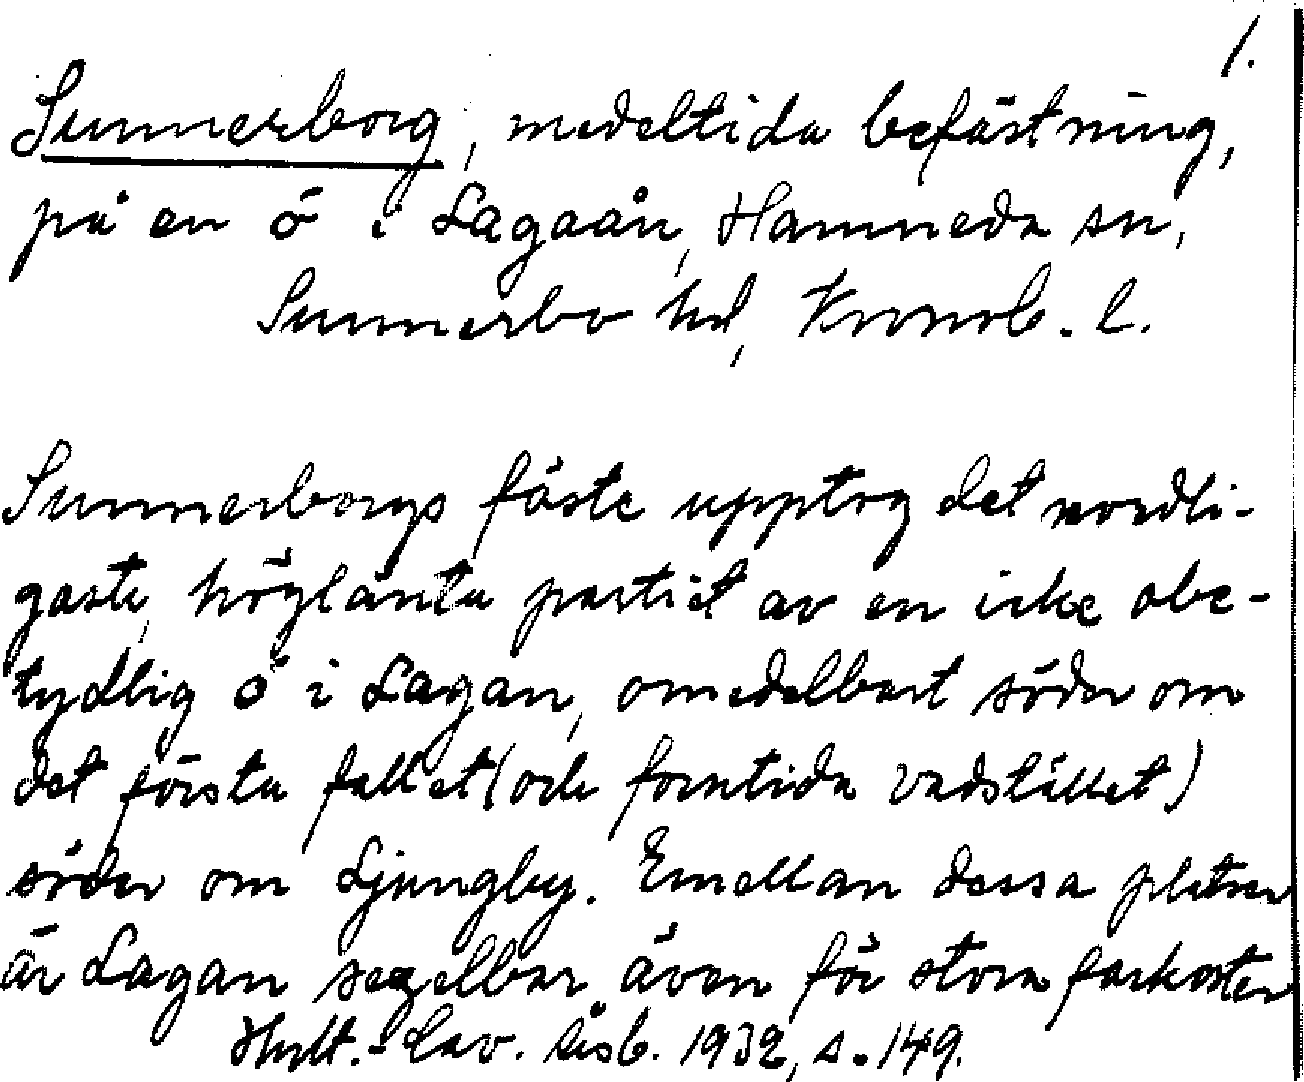 1.
Sunnerborg, medeltida befästning,
på en ö i Lagaån, Hamneda sn,
Sunnerbo hd, Kronob. l.
Sunnerborgs fäste upptog det nordli-
gaste, höglänta partiet av en icke obe-
tydlig ö i Lagan, omedelbart söder om
det första fallet (och forntida vadstället)
söder om Ljungby. Emellan dessa platser
är Lagan segelbar även för stora farkoster
Hylt.-Cav. årsb. 1932, s. 149.